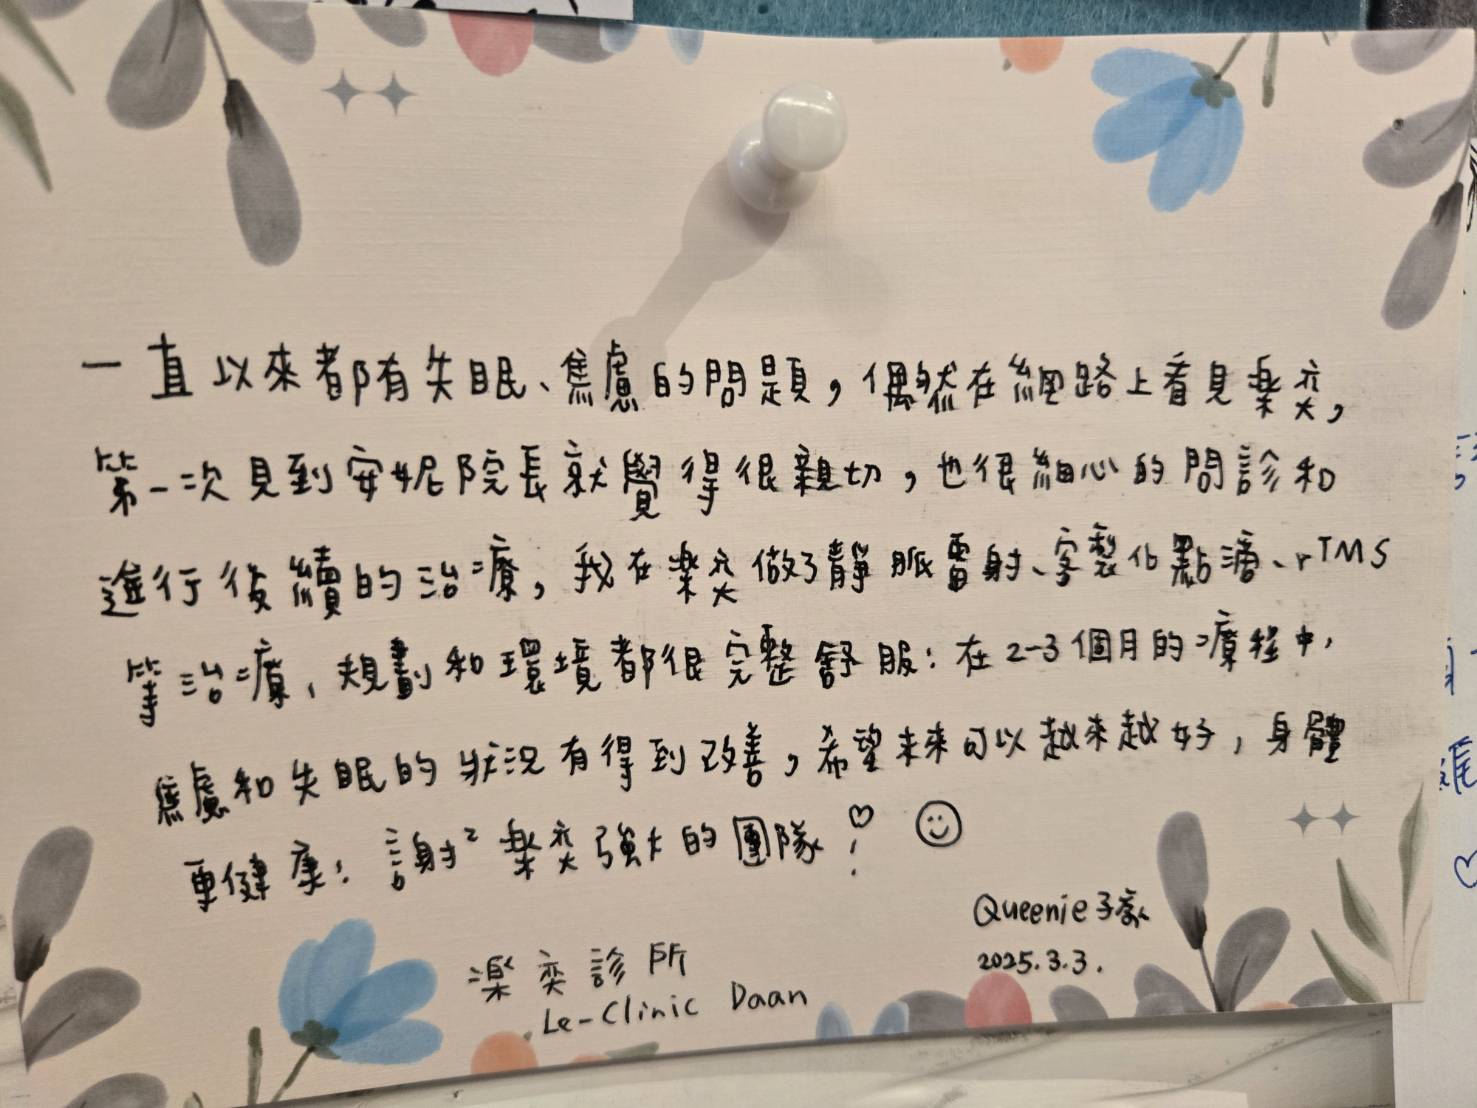 一直以來都有失眠、焦慮的問題，偶然在網路上看見樂奕，
第一次見到安妮院長就覺得很親切，也很細心的問診和
進行後續的治療，我在樂奕做了靜脈雷射、客製化點滴、rTMS
等治療，規劃和環境都很完整舒服！在2-3個月的療程中，
焦慮和失眠的狀況有得到改善，希望未來可以越來越好，身體
更健康！謝²樂奕強大的團隊！♡ ☺
Queenie子豪
2025.3.3.
濼奕診所
Le-Clinic Daan